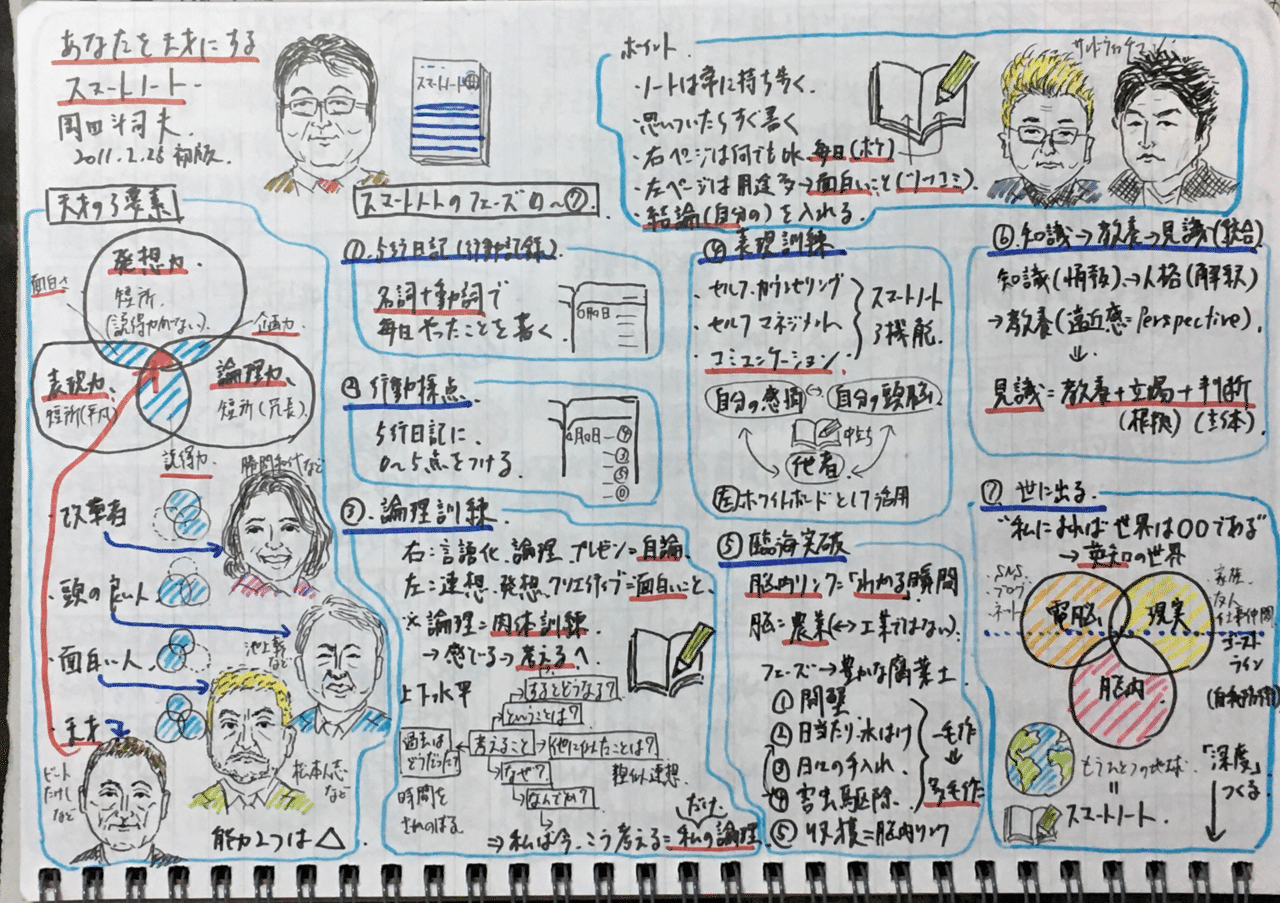 あなたを天才にする
スマートノート
岡田斗司夫
2011.2.26 初版.
スマートノート
ポイント
・ノートは常に持ち歩く.
・思いついたらすぐ書く
・右ページは何でもok 毎日(ボケ)
・左ページは用途多→面白いこと(ツッコミ)
・結論(自分の)を入れる.
サンドウィッチマン
天才の3要素
発想力.
短所.
(説得力がない).
面白さ
企画力
表現力、
短所(平凡)
論理力、
短所(冗長)
説得力
勝間和代など
・改革者
・頭の良い人
池上彰など
・面白い人
松本人志など
・天才
ビートたけしなど
能力2つは△
スマートノートのフェーズ①〜⑦.
①.5行日記(行動記録)
名詞+動詞で
毎日やったことを書く
②行動採点
5行日記に
0〜5点をつける
③.論理訓練
右:言語化.論理.プレゼン=自論
左:連想.発想.クリエイティブ=面白いこと、
※論理=肉体訓練
→感じる→考えるへ
上下水平
するとどうなる?
ということは?
過去はどうだった?
考えること
他に似たことは?
類似連想
なぜ?
なんでか?
時間をさかのぼる.
⇒私は今、こう考える=私の論理
だけ
④表現訓練
・セルフ.カウンセリング
・セルフマネジメント
・コミュニケーション.
スマートノート
3機能.
自分の感情
自分の頭脳
他者
左ホワイトボードとして活用
⑤臨海突破
脳内リンク=「わかる」瞬間
脳=農業(↔工業ではない).
フェーズ→豊かな腐葉土
①開墾
②日当たり、水はけ
③日々の手入れ.
④害虫駆除.
⑤収穫=脳内リンク
一毛作
⇓
多毛作
⑥.知識→教養→見識(統合)
知識(情報)→人格(解釈)
→教養(遠近感=Perspective).
⇓.
見識=教養+立場+判断
(根拠)(主体)
⑦ 世に出る.
"私によれば世界は○○である"
→英知の世界
・SNS
・ブログ
・ネット
電脳
現実
脳内
家族
友人
仕事仲間
ゴーストライン
もうひとつの地球
=
スマートノート.
「深度」
つくる.